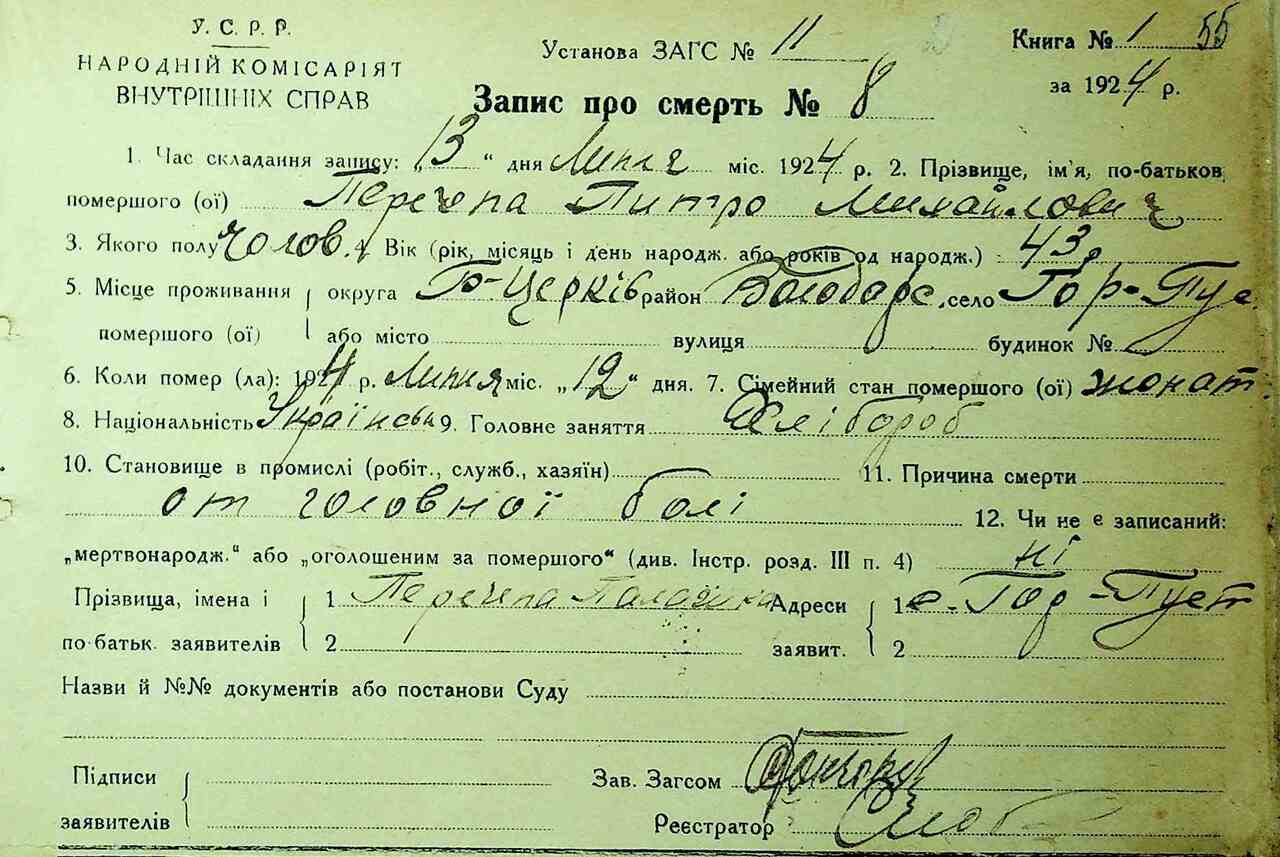 У. С. Р. Р.
НАРОДНІЙ КОМІСАРІЯТ
ВНУТРІШНІХ СПРАВ
Установа ЗАГС № 11
Книга № 1 55
за 1924 р.
Запис про смерть № 8
1. Час складання запису: „13“ дня Липня міс. 1924 р. 2. Прізвище, ім'я, по-батьков.
помершого (ої) Перечепа Питро Михайлович
3. Якого полу чолов. 4. Вік (рік, місяць і день народж. або років од народж.) 43 р
5. Місце проживання округа Б-Церків район Володарс. село Гор-Пус
помершого (ої) або місто вулиця будинок №
6. Коли помер (ла): 1924 р. Липня міс. „12“ дня. 7. Сімейний стан помершого (ої) жонат
8. Національність 9. Головне заняття Хлібороб
10. Становище в промислі (робіт., служб., хазяїн) 11. Причина смерти
от головної болі 12. Чи не є записаний:
„мертвонародж.“ або „оголошеним за помершого“ (див. Інстр. розд. III п. 4) ні
Прізвища, імена і 1 Перечепа Палажка Адреси 1 с. Гор-Пуст
по-батьк. заявителів 2 заявит. 2
Назви й №№ документів або постанови Суду
Підписи Зав. Загсом
заявителів Реєстратор